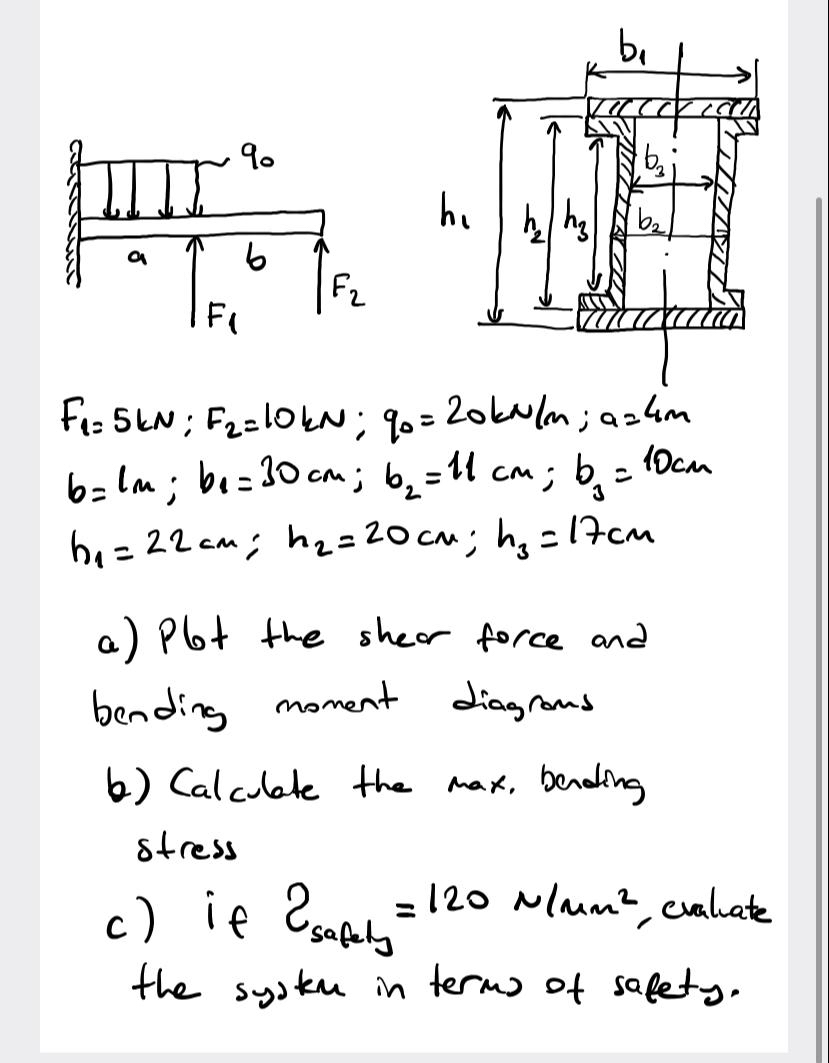 b₁
q₀
b₃
h₁
h₂
h₃
b₂
a
b
F₁
F₂
F₁=5kN; F₂=10kN; q₀=20kN/m; a=4m
b=1m; b₁=30cm; b₂=11 cm; b₃=10cm
h₁=22cm; h₂=20cm; h₃=17cm
a) Plot the shear force and
bending moment diagrams
b) Calculate the max. bending
stress
c) if safety =120 N/mm², evaluate
the system in terms of safety.